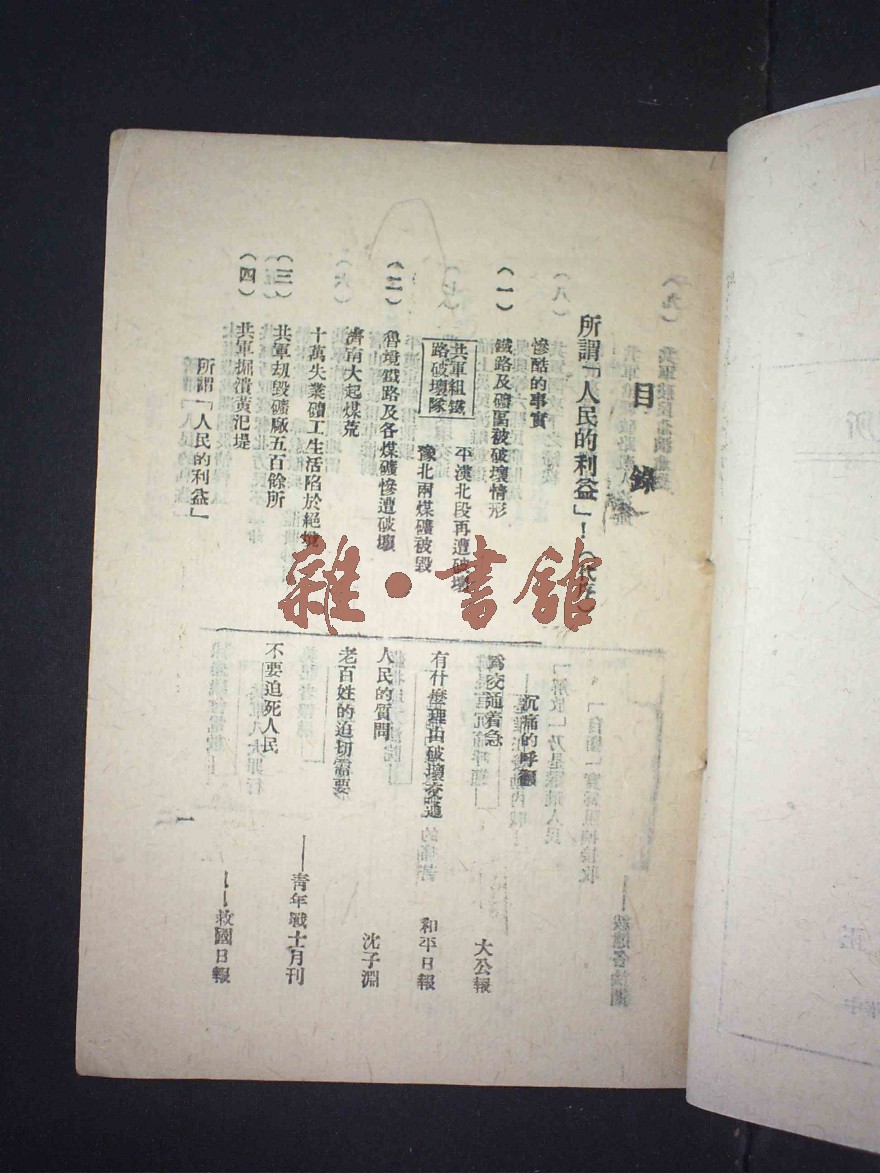 目錄
所謂「人民的利益」！（代序）
慘酷的事實
（一）鐵路及礦區被破壞情形
共軍組鐵路破壞隊
平漢北段再遭破壞
豫北兩煤礦被毀
（二）魯境鐵路及各煤礦慘遭破壞
濟南大起煤荒
十萬失業礦工生活陷於絕境
（三）共軍刼毀礦廠五百餘所
（四）共軍掘潰黃汜堤
所謂「人民的利益」
沉痛的呼籲
為交通着急
大公報
有什麼理由破壞交通
和平日報
人民的質問
沈子淵
老百姓的迫切需要
——青年戰士月刊
不要迫死人民
——救國日報
一
雜·書館